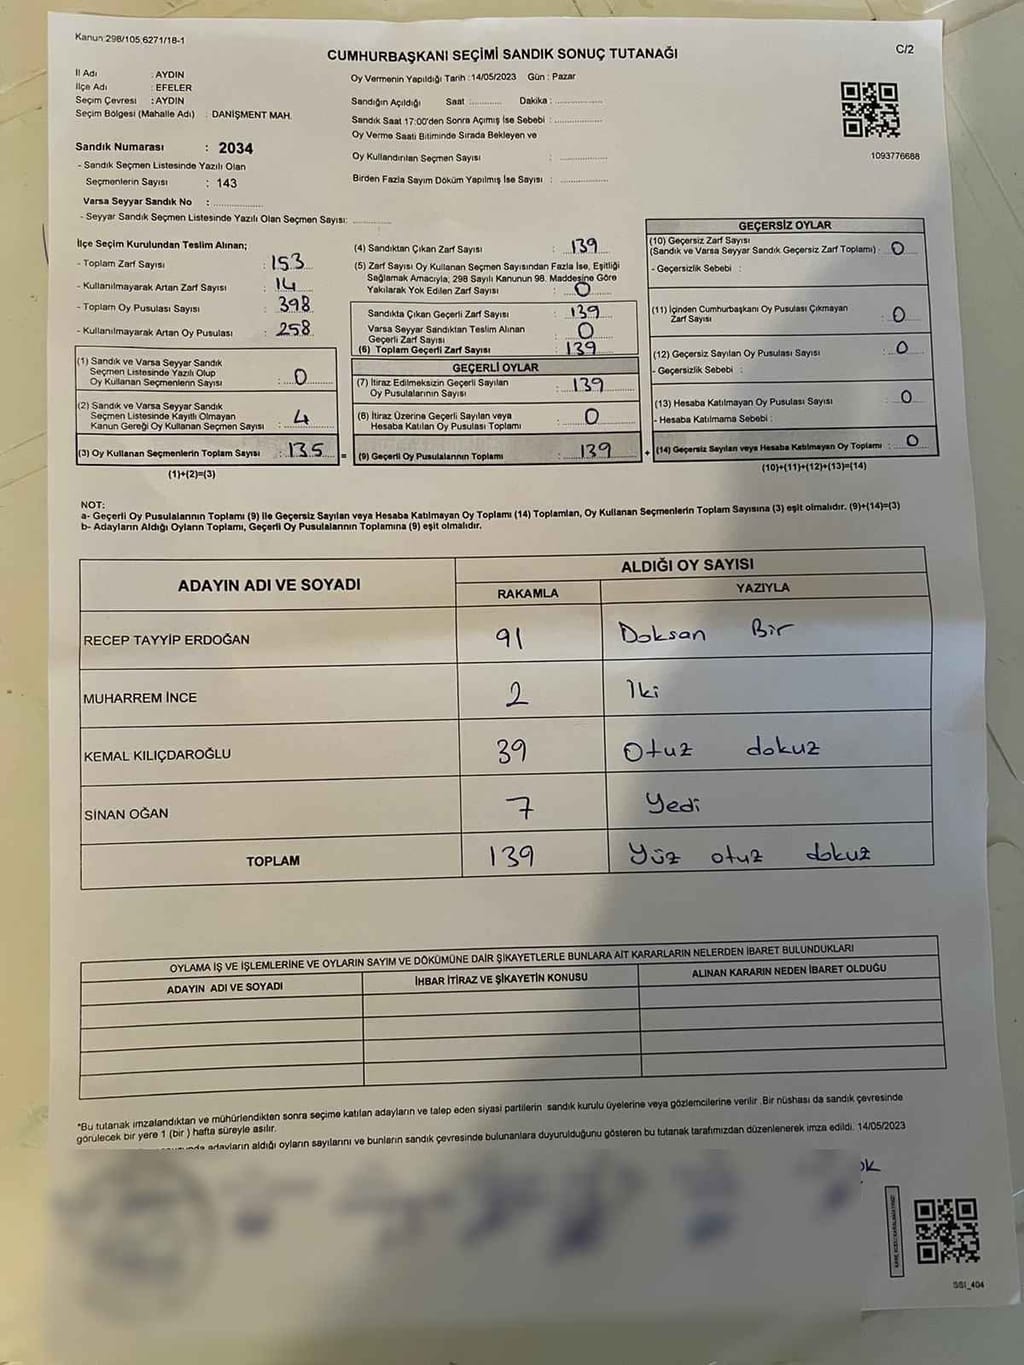 Kanun 298/105,6271/18-1
CUMHURBAŞKANI SEÇİMİ SANDIK SONUÇ TUTANAĞI
C/2
İl Adı : AYDIN
İlçe Adı : EFELER
Seçim Çevresi : AYDIN
Seçim Bölgesi (Mahalle Adı) : DANİŞMENT MAH.
Oy Vermenin Yapıldığı Tarih :14/05/2023 Gün : Pazar
Sandığın Açıldığı Saat ............ Dakika : ............
Sandık Saat 17:00'den Sonra Açımış İse Sebebi : ............
Oy Verme Saati Bitiminde Sırada Bekleyen ve
Oy Kullandırılan Seçmen Sayısı : ............
Birden Fazla Sayım Döküm Yapılmış İse Sayısı : ............
1093776688
Sandık Numarası : 2034
- Sandık Seçmen Listesinde Yazılı Olan
Seçmenlerin Sayısı : 143
Varsa Seyyar Sandık No : ............
- Seyyar Sandık Seçmen Listesinde Yazılı Olan Seçmen Sayısı: ............
İlçe Seçim Kurulundan Teslim Alınan;
- Toplam Zarf Sayısı : 153
- Kullanılmayarak Artan Zarf Sayısı : 14
- Toplam Oy Pusulası Sayısı : 398
- Kullanılmayarak Artan Oy Pusulası : 258
(1) Sandık ve Varsa Seyyar Sandık
Seçmen Listesinde Yazılı Olup
Oy Kullanan Seçmenlerin Sayısı : 0
(2) Sandık ve Varsa Seyyar Sandık
Seçmen Listesinde Kayıtlı Olmayan
Kanun Gereği Oy Kullanan Seçmen Sayısı : 4
(3) Oy Kullanan Seçmenlerin Toplam Sayısı : 135 =
(1)+(2)=(3)
(4) Sandıktan Çıkan Zarf Sayısı : 139
(5) Zarf Sayısı Oy Kullanan Seçmen Sayısından Fazla İse, Eşitliği
Sağlamak Amacıyla, 298 Sayılı Kanunun 98. Maddesine Göre
Yakılarak Yok Edilen Zarf Sayısı : 0
Sandıkta Çıkan Geçerli Zarf Sayısı : 139
Varsa Seyyar Sandıktan Teslim Alınan
Geçerli Zarf Sayısı : 0
(6) Toplam Geçerli Zarf Sayısı : 139
GEÇERLİ OYLAR
(7) İtiraz Edilmeksizin Geçerli Sayılan
Oy Pusulalarının Sayısı : 139
(8) İtiraz Üzerine Geçerli Sayılan veya
Hesaba Katılan Oy Pusulası Toplamı : 0
(9) Geçerli Oy Pusulalarının Toplamı : 139 +
GEÇERSİZ OYLAR
(10) Geçersiz Zarf Sayısı
(Sandık ve Varsa Seyyar Sandık Geçersiz Zarf Toplamı) : 0
- Geçersizlik Sebebi :
(11) İçinden Cumhurbaşkanı Oy Pusulası Çıkmayan
Zarf Sayısı : 0
(12) Geçersiz Sayılan Oy Pusulası Sayısı : 0
- Geçersizlik Sebebi :
(13) Hesaba Katılmayan Oy Pusulası Sayısı : 0
- Hesaba Katılmama Sebebi :
(14) Geçersiz Sayılan veya Hesaba Katılmayan Oy Toplamı : 0
(10)+(11)+(12)+(13)=(14)
NOT:
a- Geçerli Oy Pusulalarının Toplamı (9) ile Geçersiz Sayılan veya Hesaba Katılmayan Oy Toplamı (14) Toplamları, Oy Kullanan Seçmenlerin Toplam Sayısına (3) eşit olmalıdır. (9)+(14)=(3)
b- Adayların Aldığı Oyların Toplamı, Geçerli Oy Pusulalarının Toplamına (9) eşit olmalıdır.
ADAYIN ADI VE SOYADI
ALDIĞI OY SAYISI
RAKAMLA YAZIYLA
RECEP TAYYİP ERDOĞAN 91 Doksan Bir
MUHARREM İNCE 2 İki
KEMAL KILIÇDAROĞLU 39 Otuz dokuz
SİNAN OĞAN 7 Yedi
TOPLAM 139 Yüz otuz dokuz
OYLAMA İŞ VE İŞLEMLERİNE VE OYLARIN SAYIM VE DÖKÜMÜNE DAİR ŞİKAYETLERLE BUNLARA AİT KARARLARIN NELERDEN İBARET BULUNDUKLARI
ADAYIN ADI VE SOYADI İHBAR İTİRAZ VE ŞİKAYETİN KONUSU ALINAN KARARIN NEDEN İBARET OLDUĞU
*Bu tutanak imzalandıktan ve mühürlendikten sonra seçime katılan adayların ve talep eden siyasi partilerin sandık kurulu üyelerine veya gözlemcilerine verilir .Bir nüshası da sandık çevresinde
görülecek bir yere 1 (bir ) hafta süreyle asılır.
adayların aldığı oyların sayılarını ve bunların sandık çevresinde bulunanlara duyurulduğunu gösteren bu tutanak tarafımızdan düzenlenerek imza edildi. 14/05/2023
SSI_404